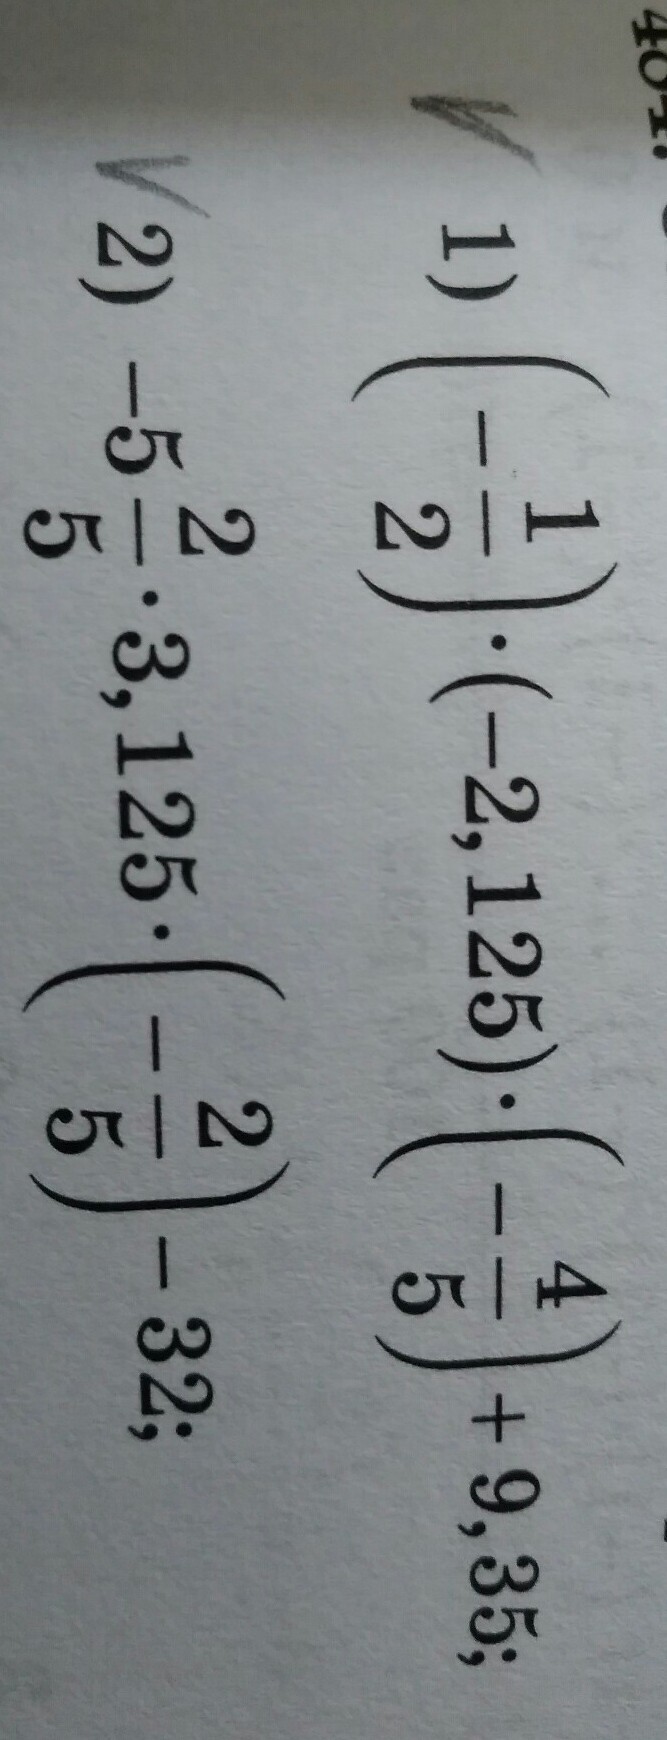 1) (−1/2) · (−2,125) · (−4/5) + 9,35;
2) −5 2/5 · 3,125 · (−2/5) − 32;